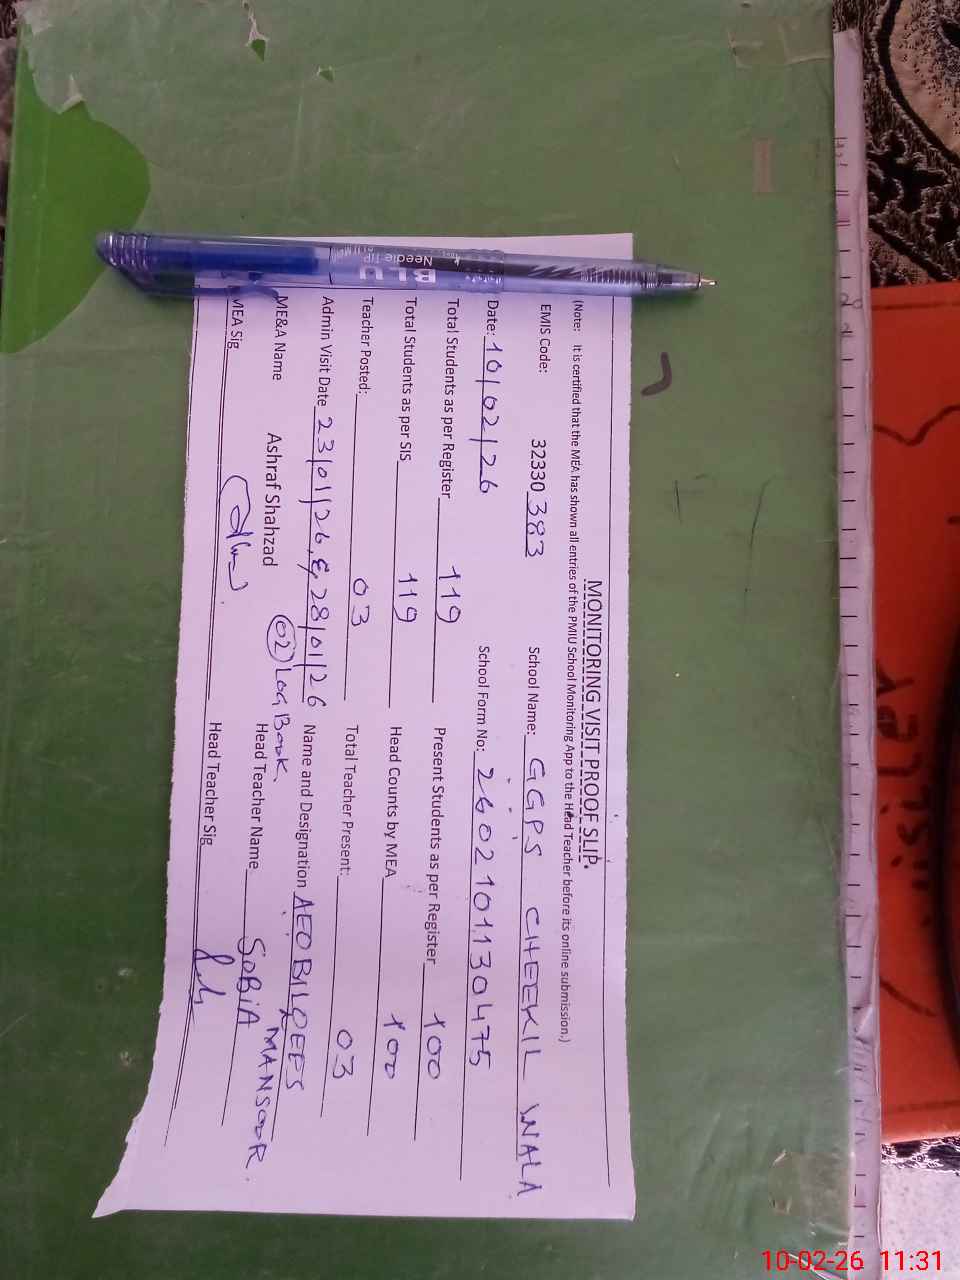 MONITORING VISIT PROOF SLIP.
(Note: It is certified that the MEA has shown all entries of the PMIU School Monitoring App to the Head Teacher before its online submission.)
EMIS Code: 32330 383 School Name: GGPS CHEEKIL WALA
Date: 10/02/26 School Form No: 26021011130475
Total Students as per Register 119 Present Students as per Register 100
Total Students as per SIS 119 Head Counts by MEA 100
Teacher Posted: 03 Total Teacher Present: 03
Admin Visit Date 23/01/26, &, 28/01/26 Name and Designation AEO BILQEES
ME&A Name Ashraf Shahzad 02 LOG Book. Head Teacher Name SOBIA MANSOOR.
MEA Sig Head Teacher Sig
BLU
Needle TiP
10-02-26 11:31